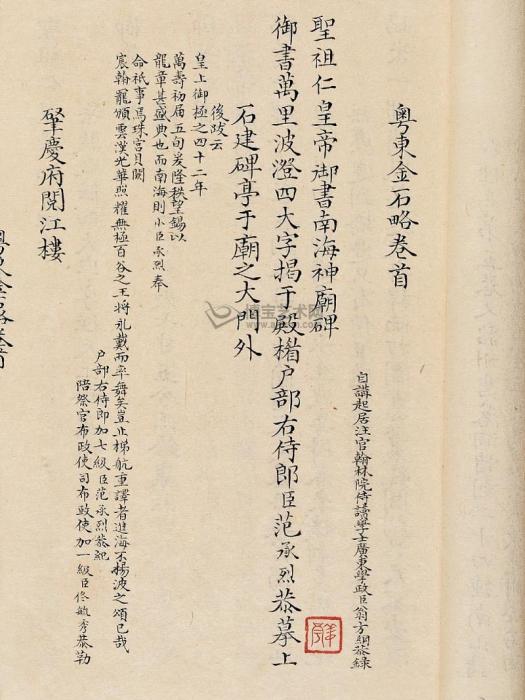 粵東金石略卷首
日講起居注官翰林院侍讀學士廣東學政臣翁方綱恭錄
聖祖仁皇帝御書南海神廟碑
御書萬里波澄四大字揭于殿楣户部右侍郎臣范承烈恭摹上
石建碑亭于廟之大門外
後跋云
皇上御極之四十二年
萬壽初屆五旬爰隆秩望錫以
龍章甚盛典也而南海則小臣承烈奉
命祇事焉珠宮貝闕
宸翰寵頒雲漢光華照耀無極百谷之王將永戴而率舞矣豈止梯航重譯者進海不揚波之頌已哉
户部右侍郎加七級臣范承烈恭紀
陪祭官布政使司布政使加一級臣佟毓秀恭勒
肇慶府閱江樓